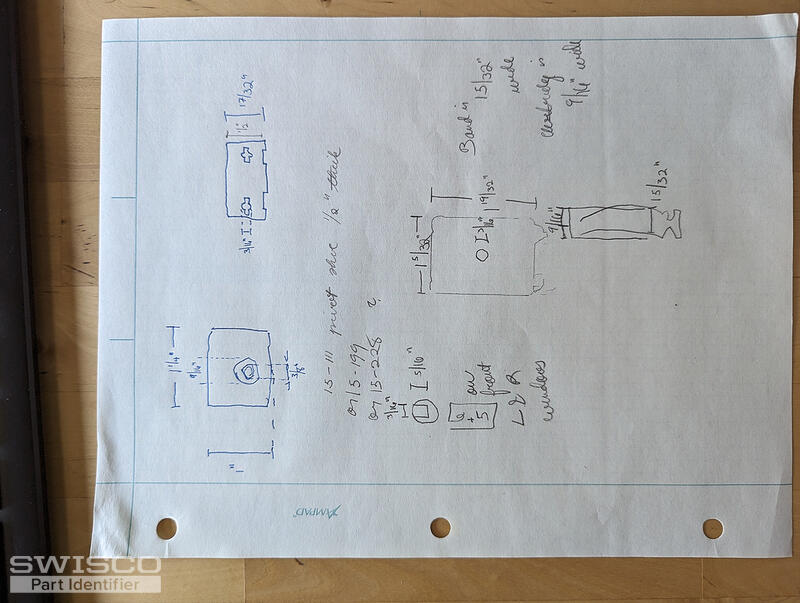 3/16"
1/2"
17/32"
1 1/4"
9/16"
3/8"
1"
15-111 pivot shoe 1/2" thick
or 15-199
or 15-228 ?
3/16"
5/16"
6
+ 5
on
front
L & R
windows
1 5/32"
3/16
19/32"
9/16"
15/32"
Band is
15/32"
wide
is
9/16" wide
AMPAD
SWISCO
Part Identifier